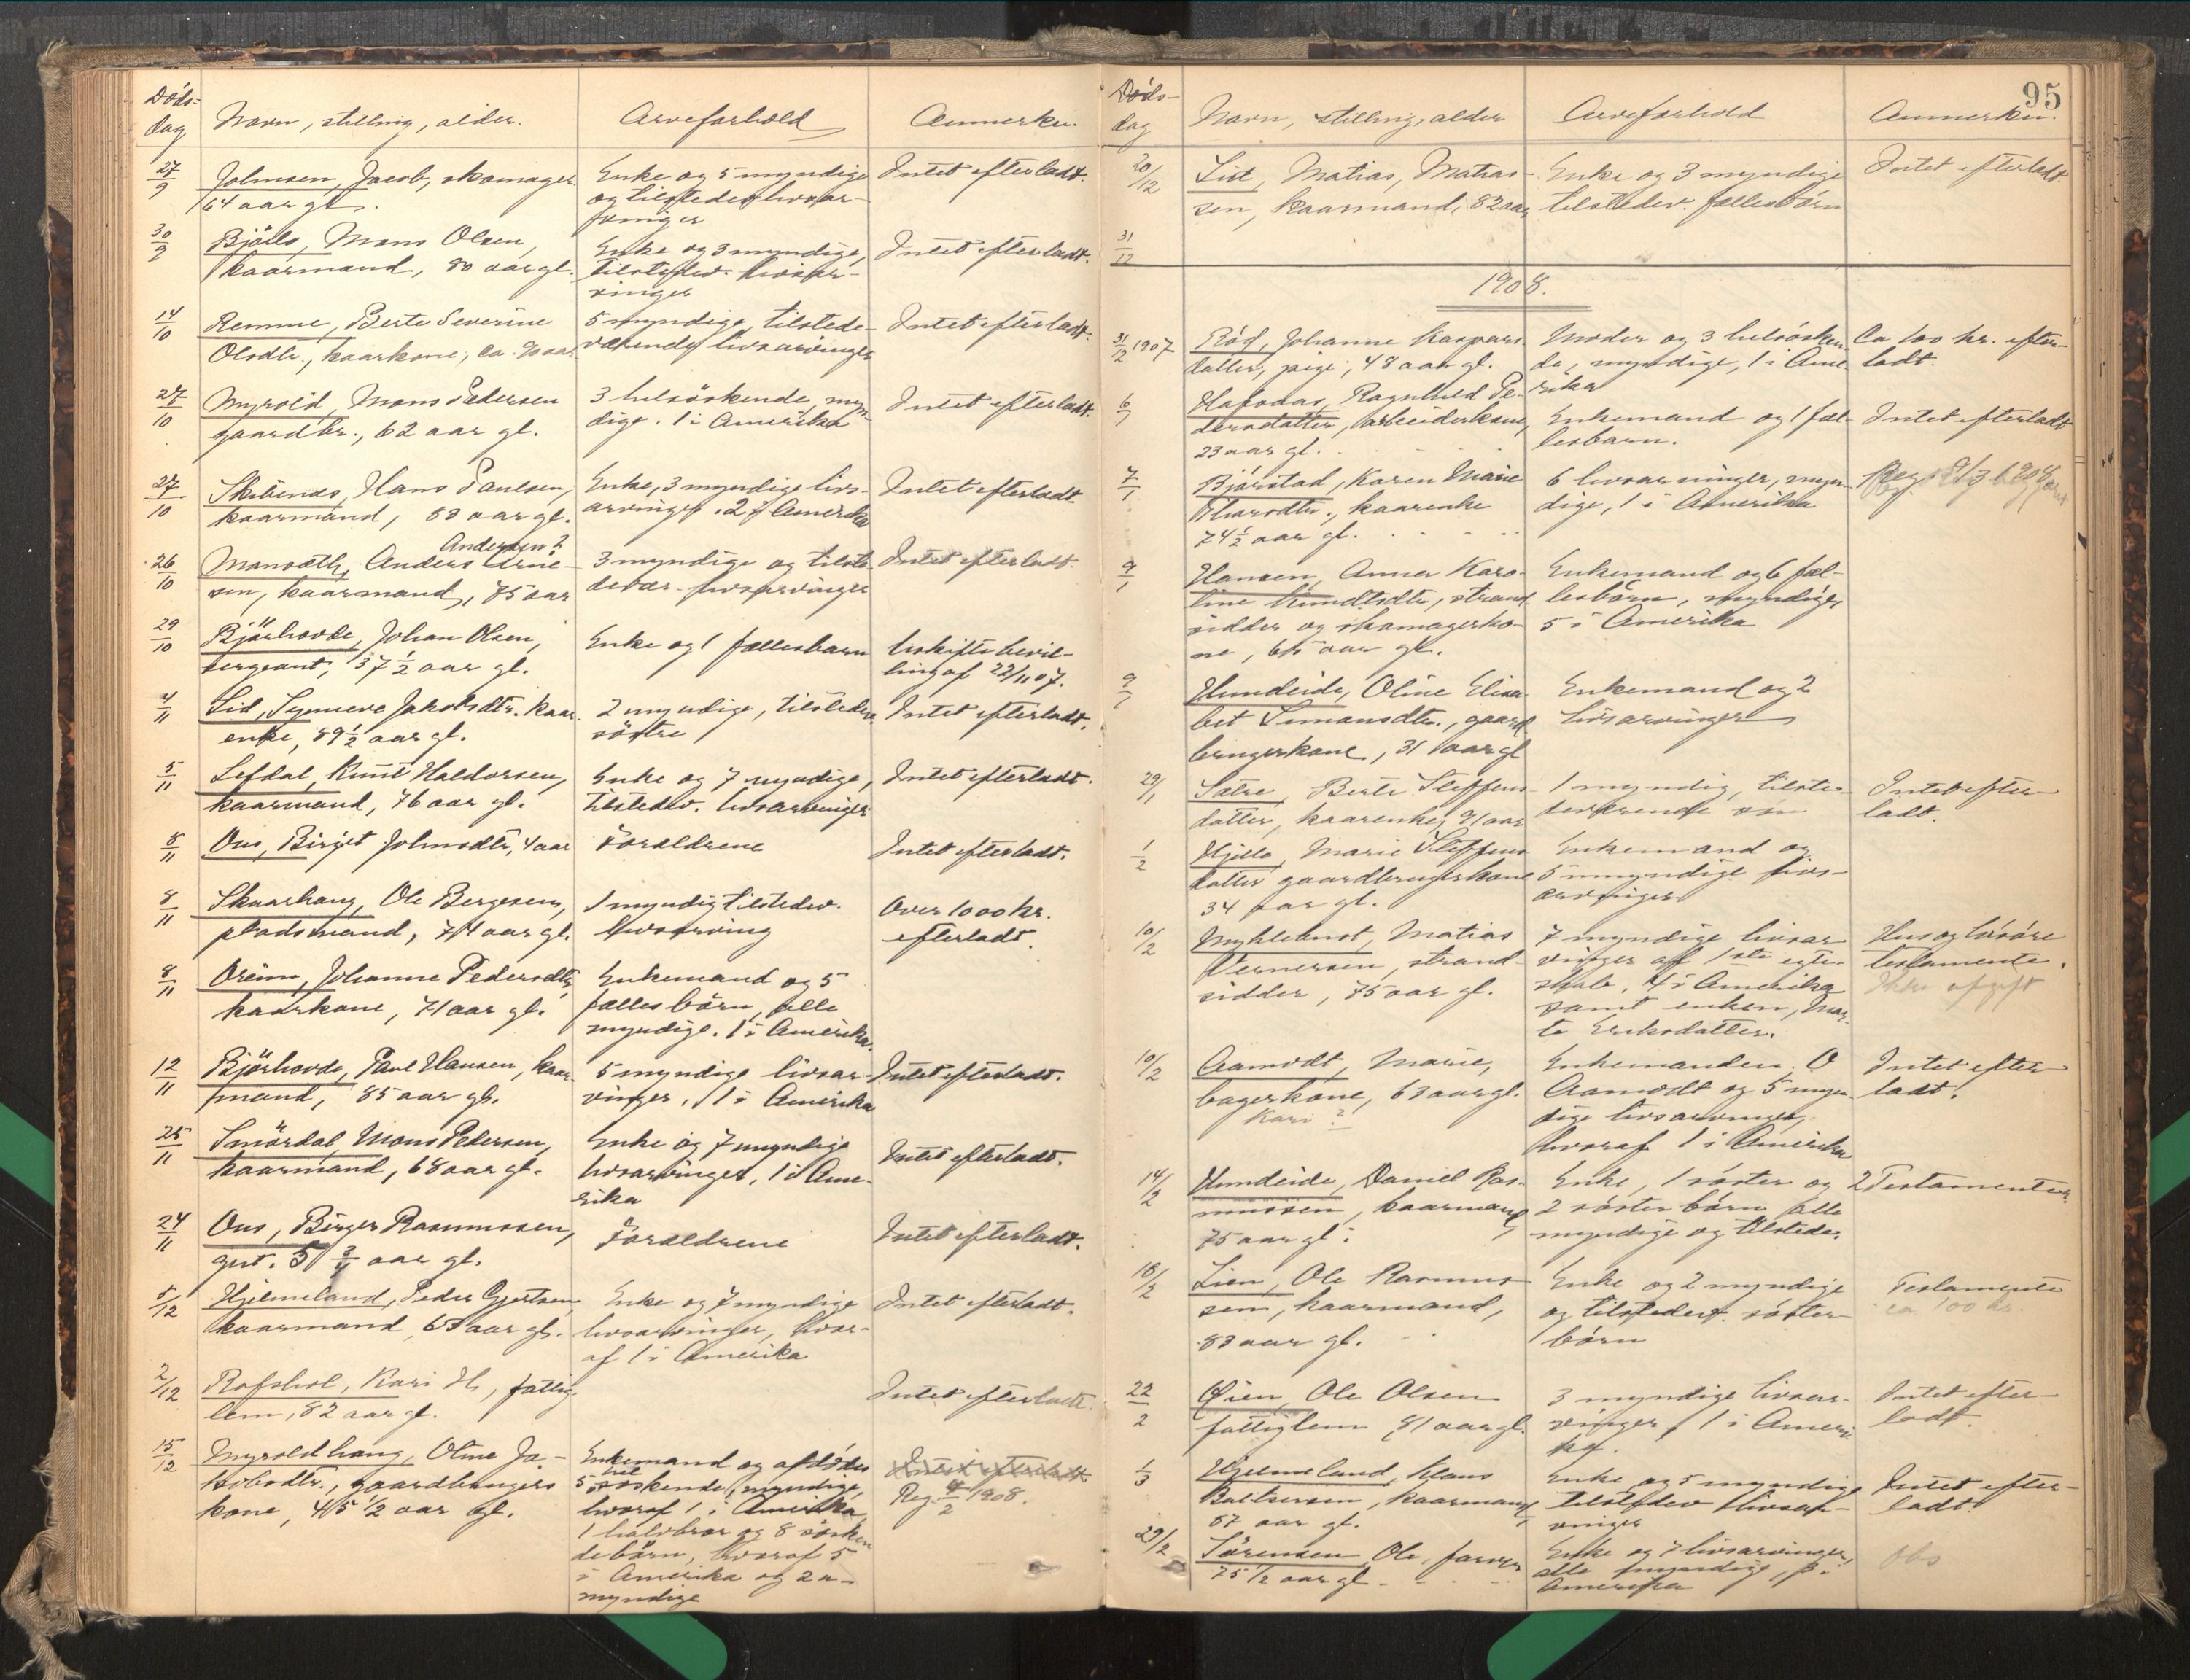 Døds-
dag
Navn, stilling, alder.
Arveforhold
Anmerkn.
27/9
Johnsen, Jacob, skomager
64 aar gl.
Enke og 5 myndige
og tilstedev. livsar-
vinger
Intet efterladt.
30/9
Mons Olsen,
kaarmand, 80 aar gl.
Enke og 3 myndige,
tilstedev. livsar-
vinger
Intet efterladt.
14/10
Remme, Berte Severine
Olsdtr., kaarkone, ca. 90 aar
5 myndige tilstede-
værende livsarvinger
Intet efterladt.
27/10
Myrold, Mons Pedersen
gaardbr., 62 aar gl.
3 helsöskende, myn-
dige. 1 i Amerika
Intet efterladt.
27/10
Hans Paulsen,
kaarmand, 83 aar gl.
Enke, 3 myndige livs-
arvinger. 2 i Amerika
Intet efterladt.
26/10
Andersen?
Anders Arne-
sen, kaarmand, 75 aar
3 myndige og tilste-
devær. livsarvinger
Intet efterladt.
29/10
Björhovde, Johan Olsen,
sergeant, 37 1/2 aar gl.
Enke og 1 fællesbarn
Uskiftebevil-
ling af 22/11 07.
4/11
Lid, Synneve Jakobsdtr. kaar-
enke, 89 1/2 aar gl.
2 myndige, tilstedev.
söstre
Intet efterladt.
5/11
Lefdal, Knut Haldorsen,
kaarmand, 76 aar gl.
Enke og 7 myndige,
tilstedev. livsarvinger
Intet efterladt.
8/11
Ous, Birgit Johnsdtr, 4 aar
Forældrene
Intet efterladt.
8/11
Skaarhaug, Ole Bergesen,
pladsmand, 74 aar gl.
1 myndig tilstedev.
livsarving
Over 1000 kr.
efterladt.
8/11
Oreim, Johanne Pedersdtr,
kaarkone, 71 aar gl.
Enkemand og 5
fællesbörn, alle
myndige. 1 i Amerika.
12/11
Björhovde, Paul Hansen, kaar-
mand, 85 aar gl.
5 myndige livsar-
vinger, 1 i Amerika
Intet efterladt.
25/11
Smördal, Mons Pedersen,
kaarmand, 68 aar gl.
Enke og 7 myndige
livsarvinger, 1 i Ame-
rika
Intet efterladt.
24/11
Ous, Birger Rasmussen,
gut. 5 3/4 aar gl.
Forældrene
Intet efterladt.
5/12
Hjelmeland, Peder Gjertsen
kaarmand, 63 aar gl.
Enke og 7 myndige
livsarvinger, hvor-
af 1 i Amerika
Intet efterladt.
2/12
Kari H., fattig-
lem, 82 aar gl.
Intet efterladt.
15/12
Myroldhaug, Oline Ja-
kobsdtr., gaardbrugers
kone, 45 1/2 aar gl.
Enkemand og afdödes
5 helsöskende, myndige,
hvoraf 1 i Amerika,
1 halvbror og 8 sösken
debörn, hvoraf 5
i Amerika og 2 u-
myndige
Intet efterladt
Reg. 4/2 1908.
95
Døds-
dag
Navn, stilling, alder
Arveforhold
Anmerkn.
20/12
Lid, Matias, Matias-
sen, kaarmand, 82 aar
Enke og 3 myndige
tilstedev. fællesbörn
Intet efterladt.
31/12
1908.
31/12 1907
Röd, Johanne Kaspars-
datter, pige, 48 aar gl.
Moder og 3 helsösken-
de, myndige, 1 i Ame-
rika
Ca 100 kr. efter-
ladt.
6/1
Ragnhild Pe-
dersdatter, arbeiderkone,
23 aar gl.
Enkemand og 1 fæl-
lesbarn.
Intet efterladt
7/1
Björstad, Karen Marie
kaarenke
74 1/2 aar gl.
6 livsarvinger, myn-
dige, 1 i Amerika
9/1
Hansen, Anna Karo-
line Knudtsdtr, strand-
sidder og skomagerko-
ne, 65 aar gl.
Enkemand og 6 fæl-
lesbörn, myndige,
5 i Amerika
9/1
Hundeide, Oline Elisa-
bet Simonsdtr., gaard-
brugerkone, 31 aar gl
Enkemand og 2
livsarvinger
29/1
Sætre, Berte Steffens-
datter, kaarenke, 91 aar
1 myndig, tilste-
deværende sön
Intet efter-
ladt.
1/2
Hjelle, Marie Steffens-
datter gaardbrugerkone
34 aar gl.
Enkemand og
5 umyndige livs-
arvinger
10/2
Myklebust, Matias
Vernersen, strand-
sidder, 75 aar gl.
7 myndige livsar-
vinger af 1ste egte-
skab, 4 i Amerika
samt enken, Mar-
te Eriksdatter.
Hus og lösöre
testamente.
Ikke afgift
10/2
Aamodt, Marie,
bagerkone, 63 aar gl.
Kari?
Enkemanden O
Aamodt og 5 myn-
dige livsarvinger,
hvoraf 1 i Amerika
Intet efter-
ladt.
14/2
Hundeide, Daniel Ras-
mussen, kaarmand
75 aar gl.
Enke, 1 söster og
2 sösterbörn alle
myndige og tilstedev.
2 Testamenter
18/2
Lien, Ole Rasmus-
sen, kaarmand,
83 aar gl.
Enke og 2 myndige
og tilstedev. söster-
börn
Testamente
ca 100 kr.
22/2
Øien, Ole Olsen
fattiglem, 81 aar gl.
3 myndige livsar-
vinger, 1 i Ameri-
ka.
Intet efter-
ladt.
1/3
Hjelmeland, Klaus
Baltsersen, kaarmand
87 aar gl.
Enke og 5 myndige
tilstedev livsar-
vinger
Intet efter-
ladt.
29/2
Sörensen, Ole, farver
75 1/2 aar gl
Enke og 7 livsarvinger,
alle myndige,
Amerika
Obs